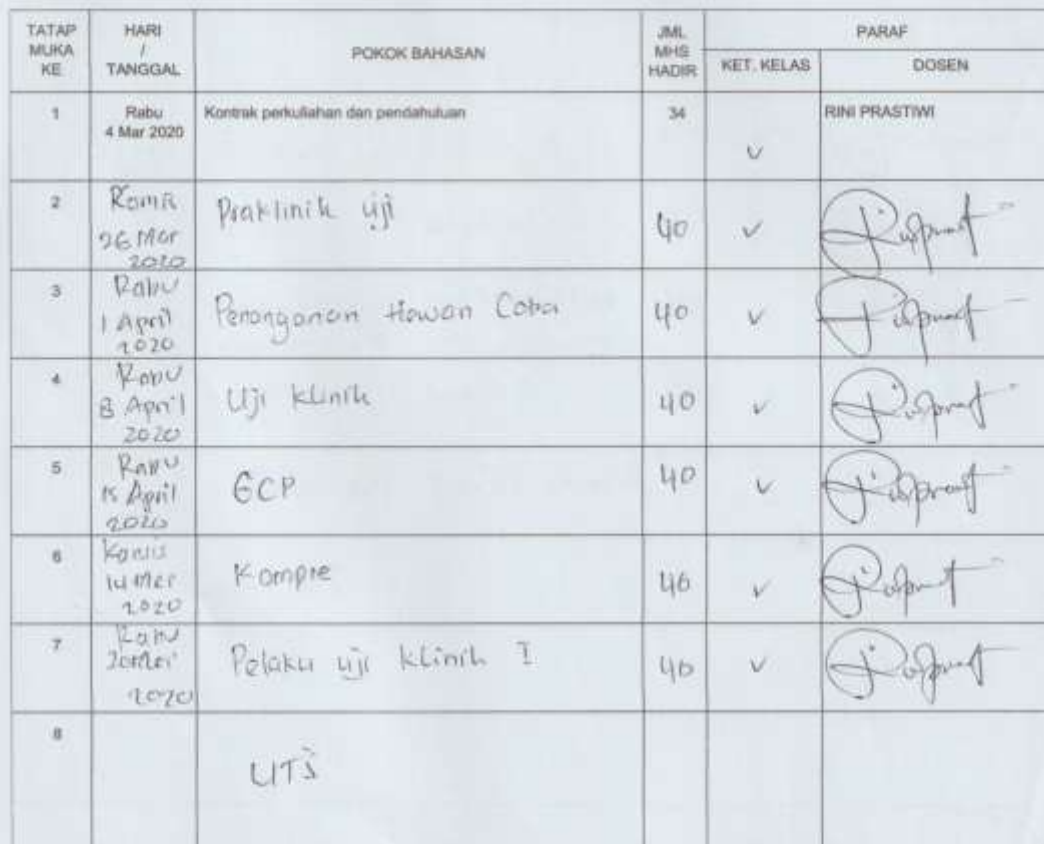 TATAP MUKA KE
HARI / TANGGAL
POKOK BAHASAN
JML MHS HADIR
PARAF
KET. KELAS
DOSEN
1
Rabu
4 Mar 2020
Kontrak perkuliahan dan pendahuluan
34
RINI PRASTIWI
2
Kamis
26 Mar
2020
Praklinik uji
40
3
Rabu
1 April
2020
Penanganan Hewan Coba
40
4
Rabu
8 April
2020
Uji klinik
40
5
Rabu
15 April
2020
GCP
40
6
Kamis
14 Mei
2020
Kompre
40
7
Rabu
20 Mei
2020
Pelaku uji klinik I
40
8
UTS